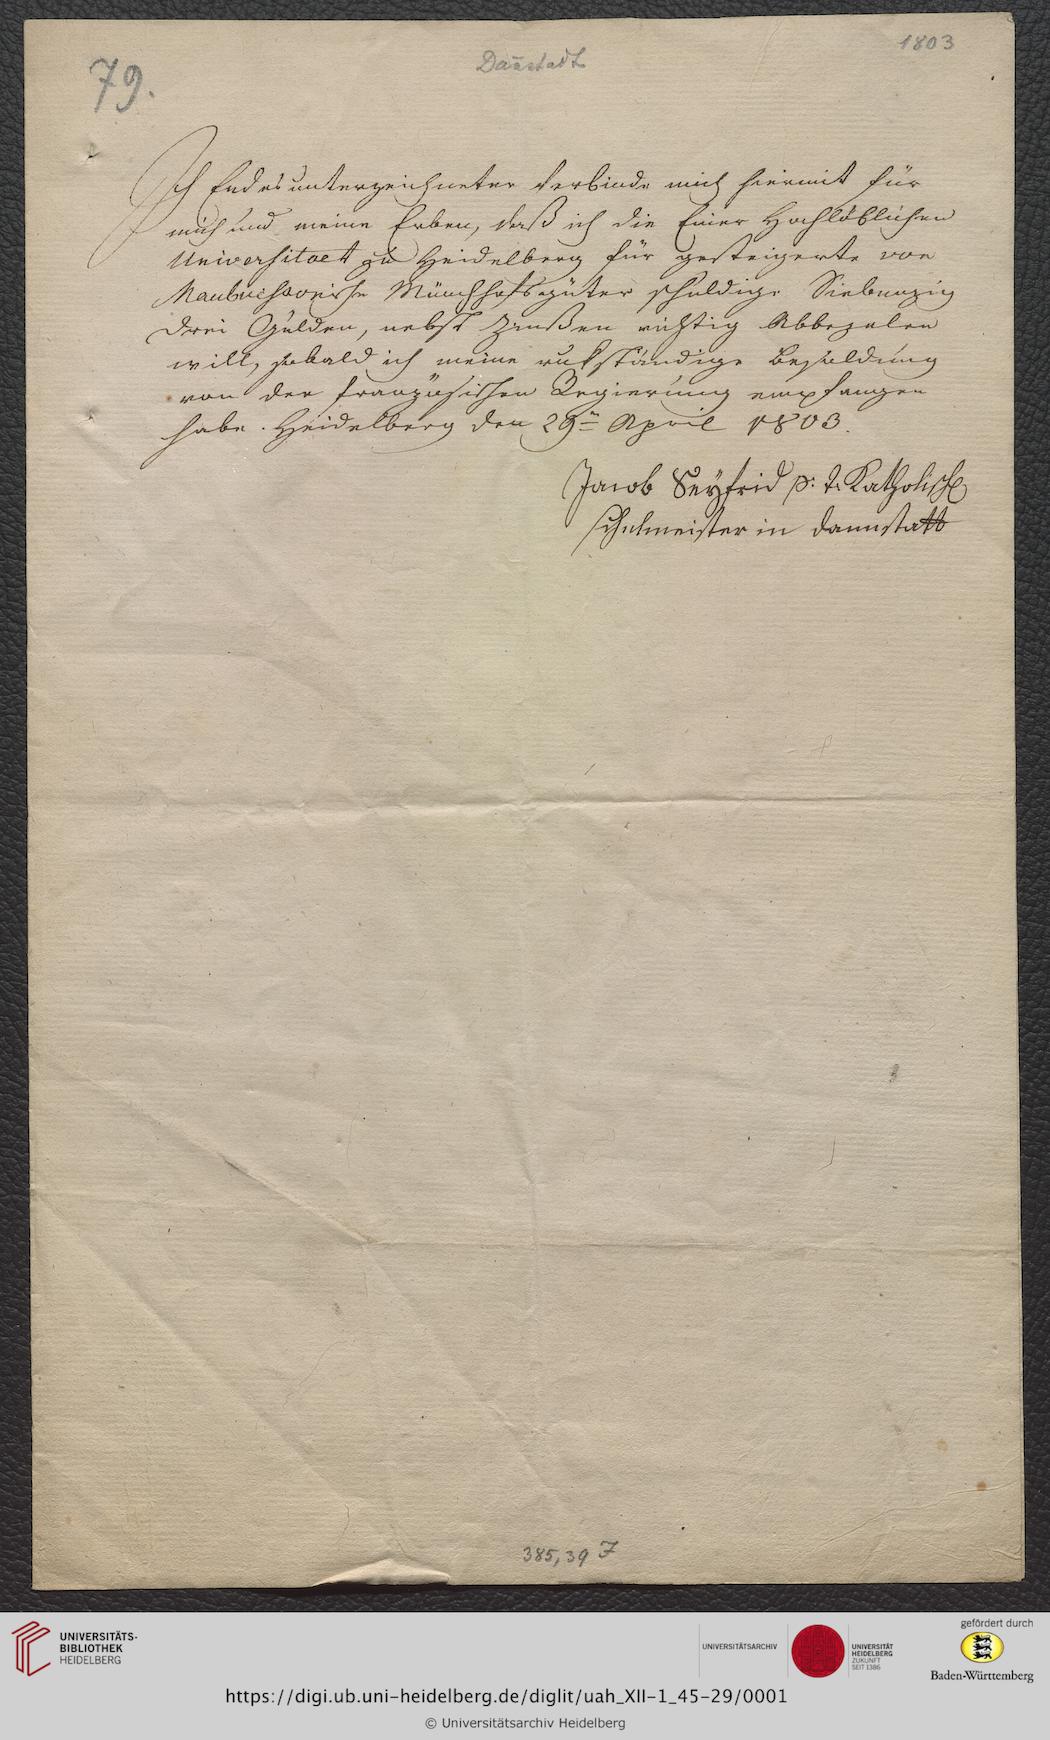 79.
Dañstadt
1803
Ich Endes unterzeichneter verbinde mich hiermit für
mich und meine Erben, daß ich die Einer Hochlöblichen
Universitaet zu Heidelberg für gesteigerte von
Münchhofsgüter schuldige Siebenzig
drei Gulden, nebst Zinßen richtig Abbezalen
will, sobald ich meine rukständige Besoldung
von der französischen Regierung empfangen
habe. Heidelberg den 29ⁿ April 1803.
Jacob Seyfrid p: t: Katholisch
schulmeister in dannstatt
385,39 F
UNIVERSITÄTS-
BIBLIOTHEK
HEIDELBERG
UNIVERSITÄTSARCHIV
UNIVERSITÄT
HEIDELBERG
ZUKUNFT
SEIT 1386
gefördert durch
Baden-Württemberg
https://digi.ub.uni-heidelberg.de/diglit/uah_XII-1_45-29/0001
© Universitätsarchiv Heidelberg